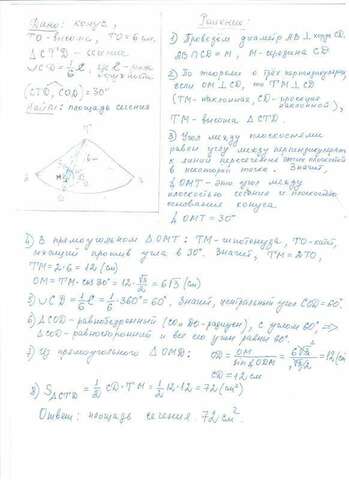 Дано: конус,
ТО-высота, ТО=6 см,
△СТD - сечение
∪CD=1/6 ℓ, где ℓ-длина
окружности
(CTD, COD)=30°
Найти: площадь сечения
T
6
M
O
Решение:
1) Проведем диаметр AB⊥хорде CD.
AB∩CD=M, M-середина CD
2) По теореме о трёх перпендикулярах,
если OM⊥CD, то TM⊥CD
(TM-наклонная, OM-проекция
наклонной),
TM-высота △CTD.
3) Угол между плоскостями
равен углу между перпендикулярами
к линии пересечения этих плоскостей
в некоторой точке. Значит,
∠OMT-это угол между
плоскостью сечения и плоскостью
основания конуса
∠OMT=30°
4) В прямоугольном △OMT: TM-гипотенуза, TO-катет,
лежащий против угла в 30°. Значит, TM=2TO,
TM=2·6=12(см)
OM=TM·cos30°=12·√3/2=6√3(см)
5) ∪CD=1/6 ℓ=1/6·360°=60°. Значит, центральный угол COD=60°.
6) △COD-равнобедренный (CO и DO-радиусы), с углом 60°, =>
△COD-равносторонний и все его углы равны 60°.
7) Из прямоугольного △OMD: OD=OM/sin∠ODM=6√3/(√3/2)=12(см)
CD=12 см
8) S△CTD=1/2 CD·TM=1/2·12·12=72(см²)
Ответ: площадь сечения 72 см².